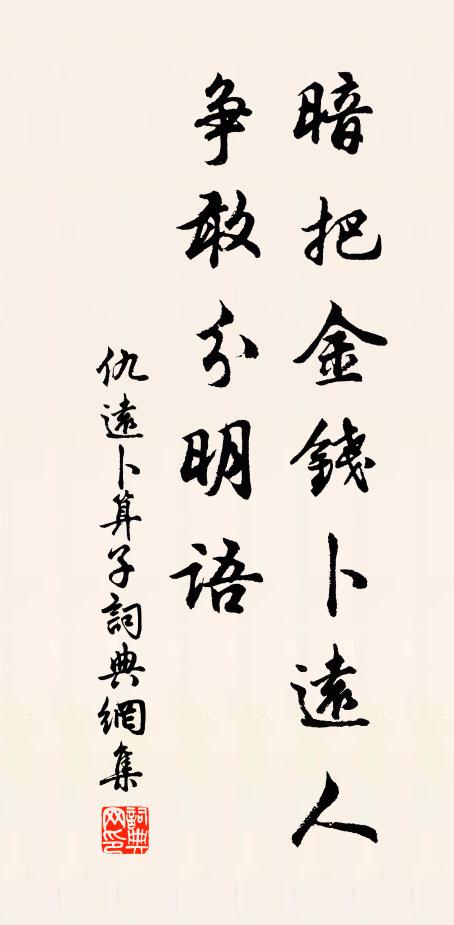 暗把金錢卜遠人
争敢分明語
仇遠卜算子詞典網集
詞典網印